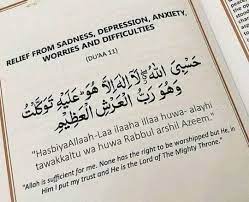 RELIEF FROM SADNESS, DEPRESSION, ANXIETY,
WORRIES AND DIFFICULTIES
(DU'AA 11)
حَسْبِيَ اللّٰهُ لَآ اِلٰهَ اِلَّا هُوَ عَلَيْهِ تَوَكَّلْتُ
وَهُوَ رَبُّ الْعَرْشِ الْعَظِيْمِ
"HasbiyaAllaah-Laa ilaaha illaa huwa- alayhi
tawakkaltu wa huwa Rabbul arshil Azeem."
"Allah is sufficient for me. None has the right to be worshipped but He, in
Him I put my trust and He is the Lord of The Mighty Throne."